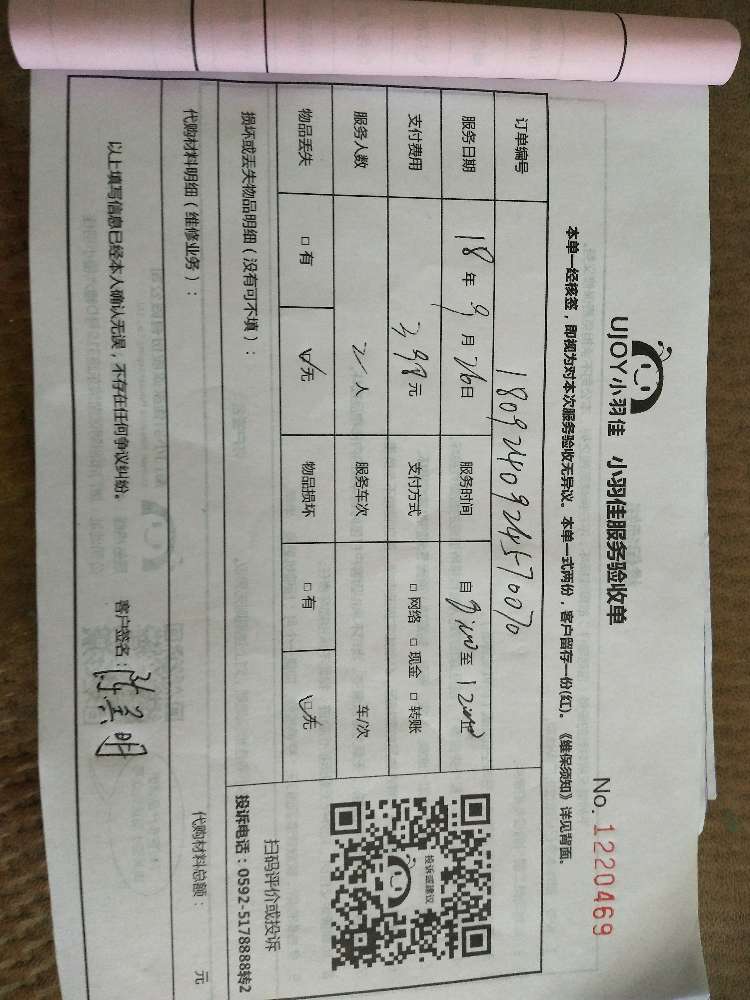 UJOY小羽佳 小羽佳服务验收单
No. 1220469
本单一经核签,即视为对本次服务验收无异议。本单一式两份,客户留存一份(红)。《维保须知》详见背面。
订单编号 1809240924570070
服务日期 18年9月26日 服务时间 自9:00至12:00止
支付费用 398元 支付方式 □网络 □现金 □转账
服务人数 2人 服务车次 车/次
物品丢失 □有 ☑无 物品损坏 □有 ☑无
投诉或建议
扫码评价或投诉
投诉电话:0592-5178888转2
损坏或丢失物品明细(没有可不填):
代购材料明细(维修业务): 代购材料总额: 元
以上填写信息已经本人确认无误,不存在任何争议纠纷。 客户签名: